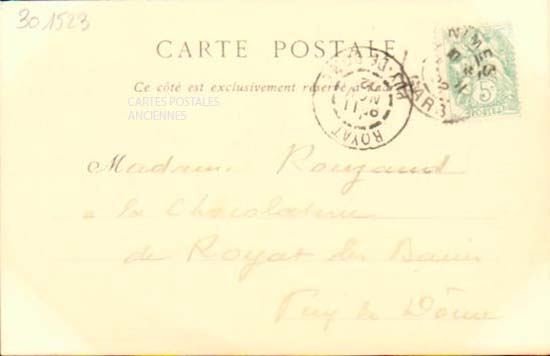 301523
CARTE POSTALE
Ce côté est exclusivement réservé à
CARTES POSTALES
ANCIENNES
NIMES
GARD
5c
POSTES
PUY-DE-DOME
ROYAT
Madame Rouzaud
à la Chocolaterie
de Royat les Bains
Puy de Dôme